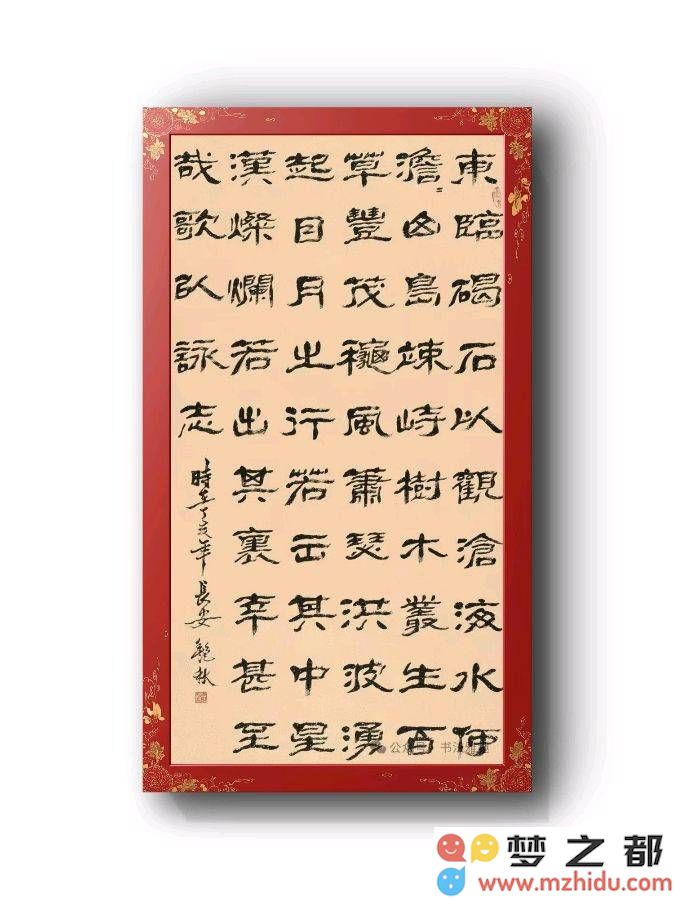 東臨碣石以觀滄海水何
澹〻山島竦峙樹木叢生百
草豐茂龝風蕭瑟洪波湧
起日月之行若出其中星
漢燦爛若出其裏幸甚至
哉歌以詠志
時在丁亥年長安
公众号
梦之都
www.mzhidu.com